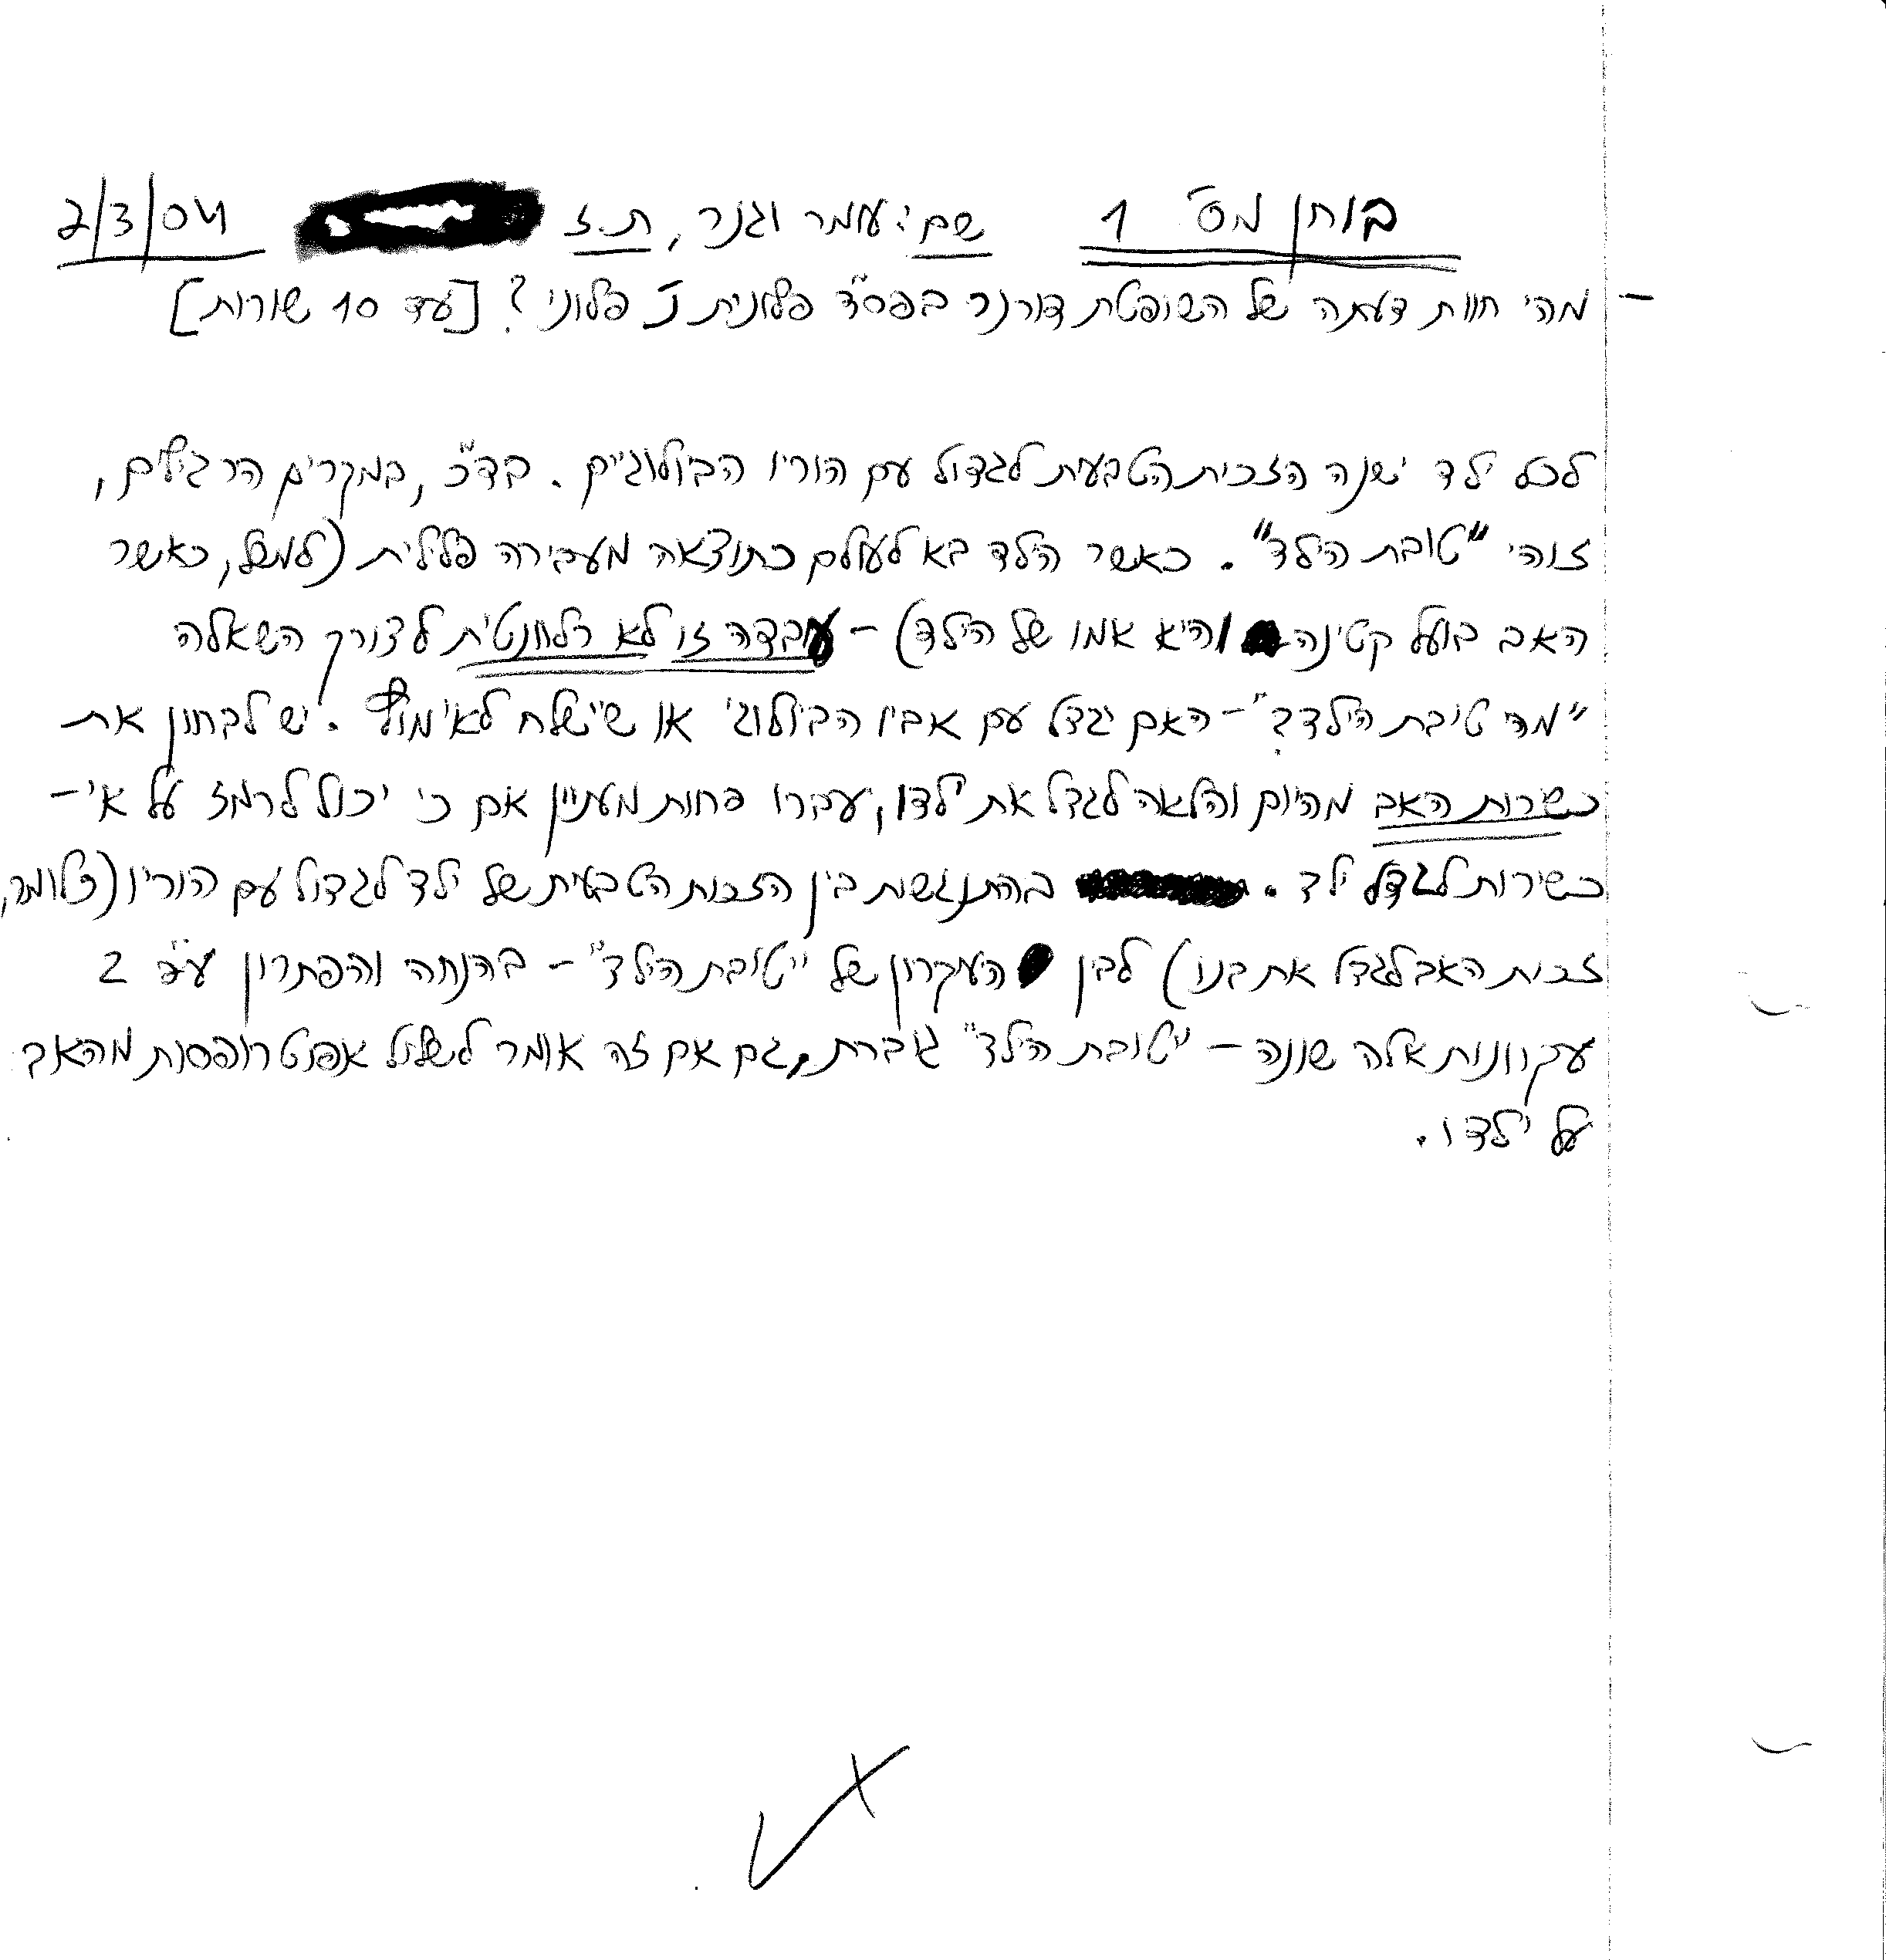 בוחן מס' 1 שם: עומר וגנר, ת.ז 2/3/04
- מהי חוות דעתה של השופטת דורנר בפס"ד פלונית נ' פלוני? [עד 10 שורות]
לכל ילד ישנה הזכות הטבעית לגדול עם הוריו הביולוגיים. בד"כ, במקרים הרגילים,
זוהי "טובת הילד". כאשר הילד בא לעולם כתוצאה מעבירה פלילית (למשל, כאשר
האב בועל קטינה והיא אמו של הילד) - עובדה זו לא רלוונטית לצורך השאלה
"מה טובת הילד?" - האם יגדל עם אביו הביולוגי או שיישלח לאימוץ. יש לבחון את
כשרות האב מהיום והלאה לגדל את ילדו, עברו פחות מעניין אם כי יכול לרמז על אי-
כשירות לגדל ילד. בהתנגשות בין הזכות הטבעית של ילד לגדול עם הוריו (כלומר,
זכות האב לגדל את בנו) לבין העקרון של "טובת הילד" - בהנחה והפתרון ע"פ 2
עקרונות אלה שונה - "טובת הילד" גוברת, גם אם זה אומר לשלול אפוטרופסות מהאב
על ילדו.